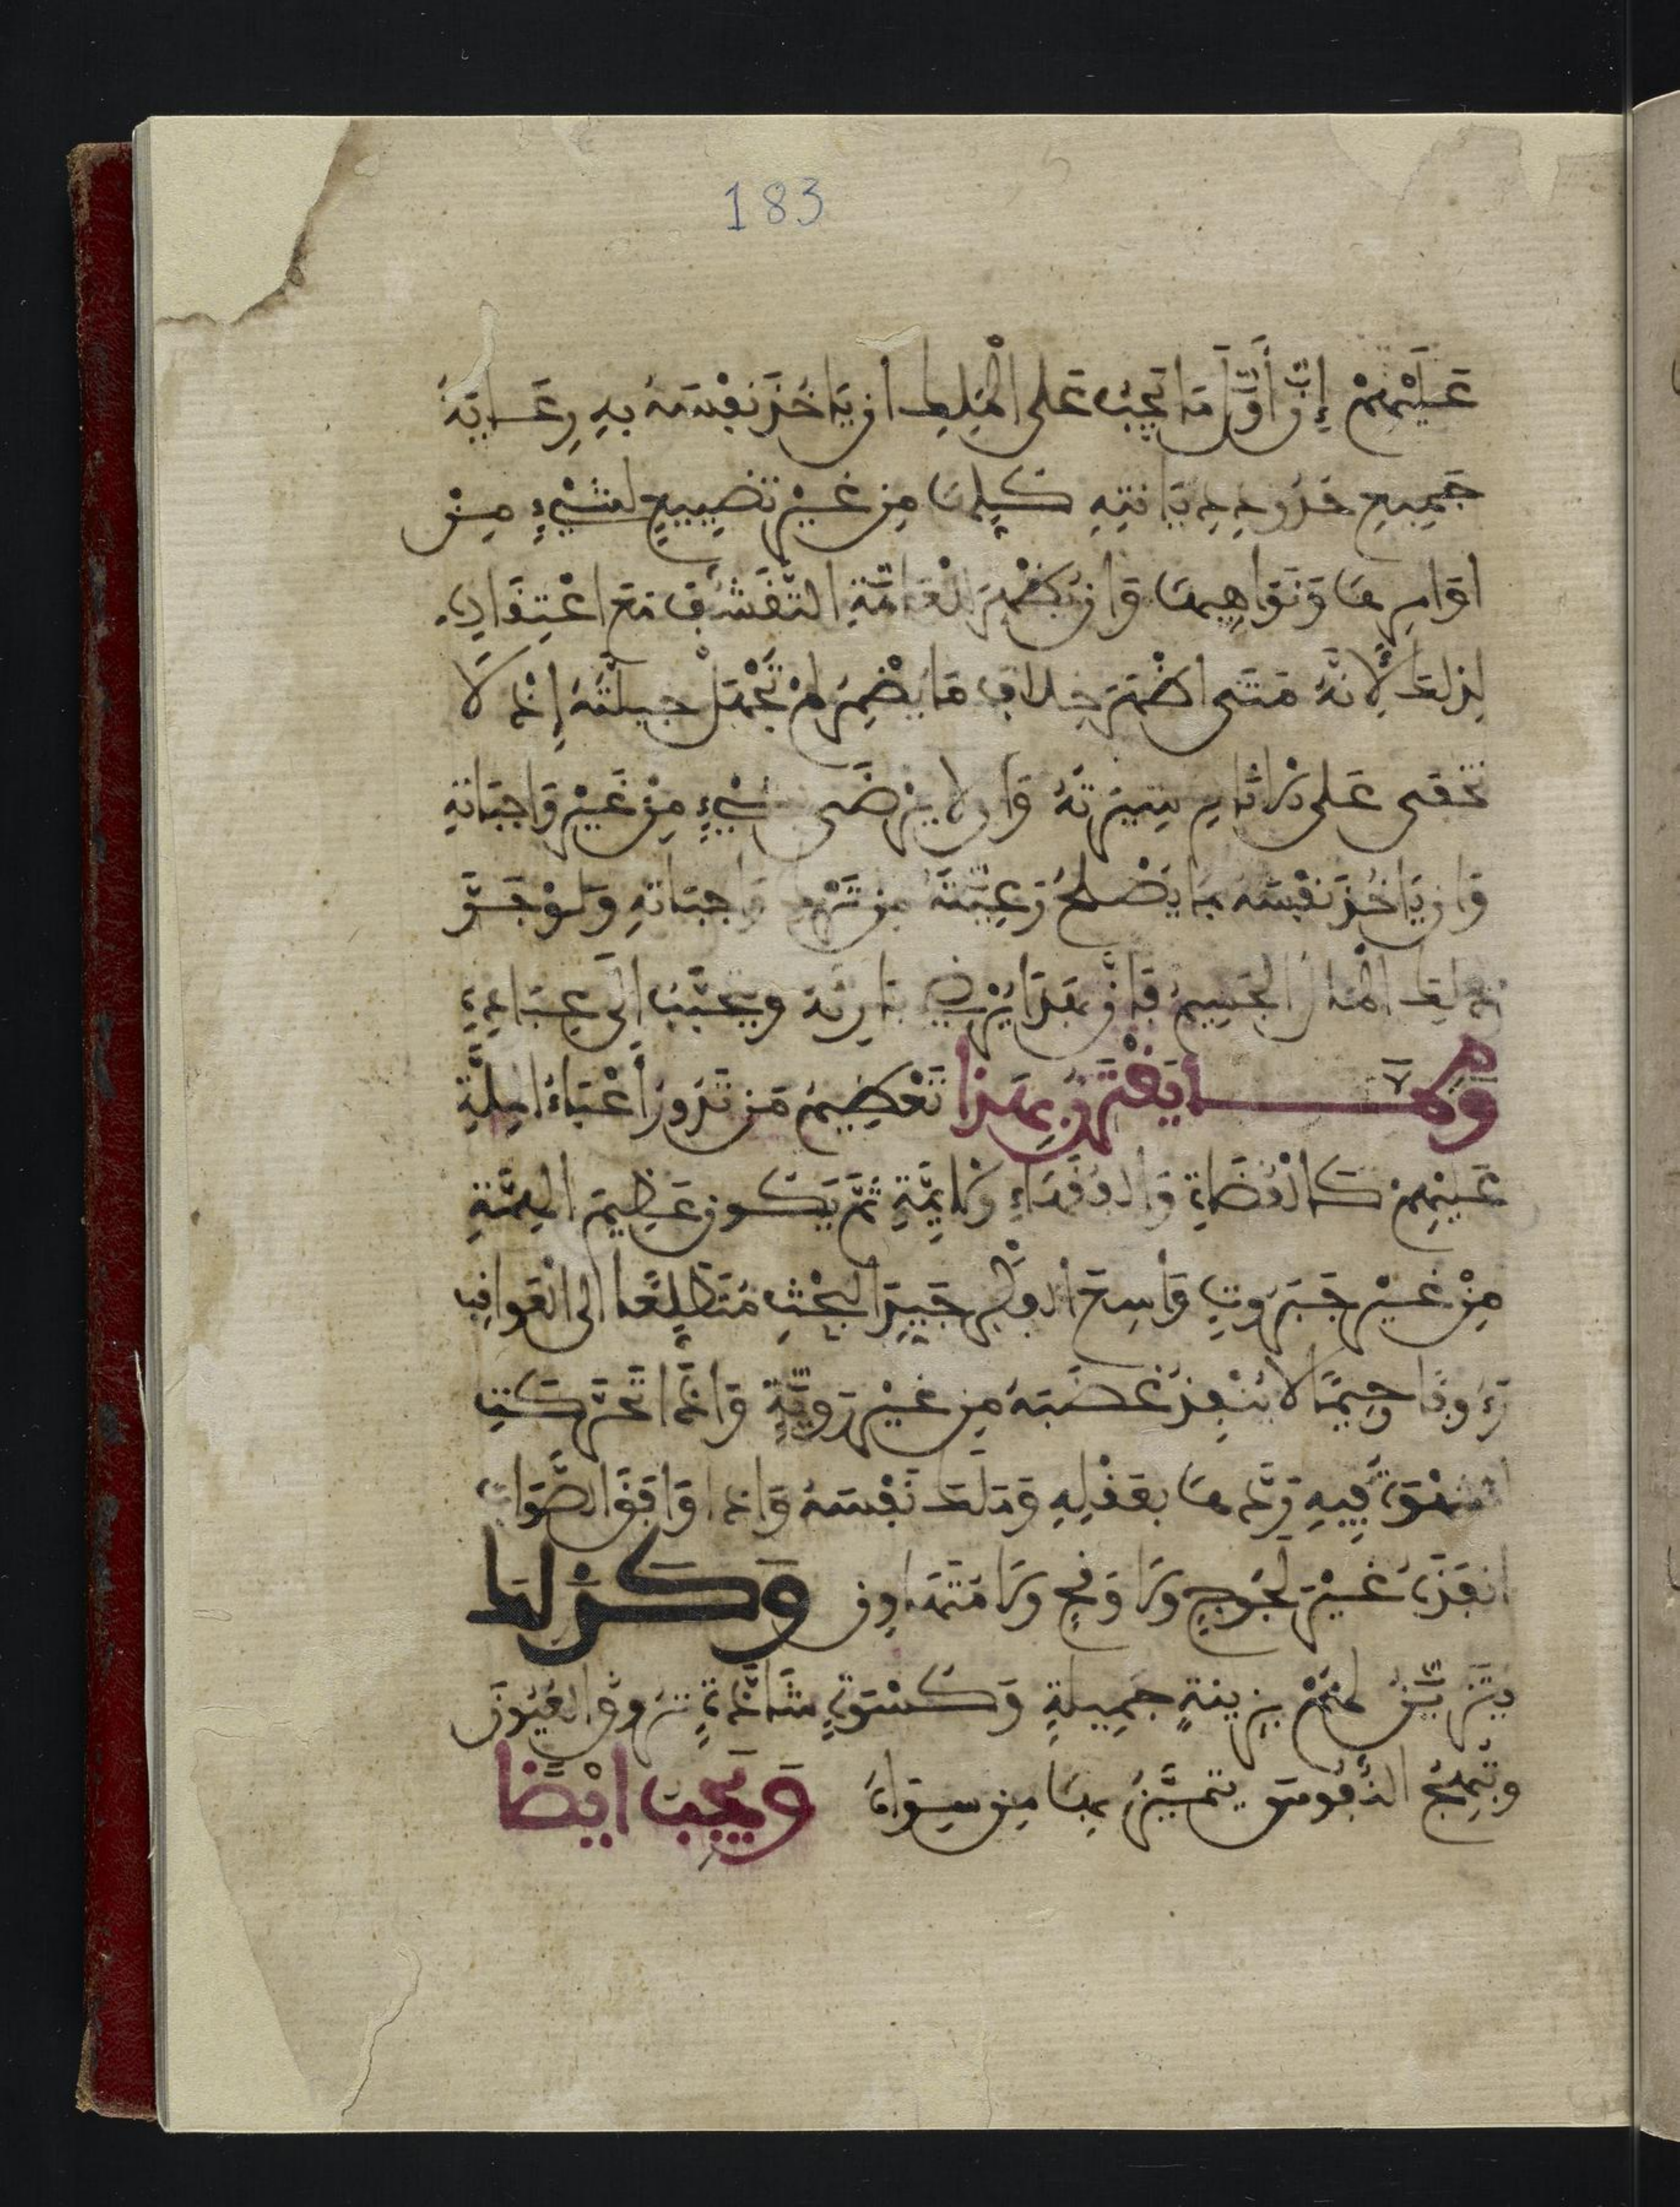 183
عَلَيْهِمْ إِنَّ أَوَّلَ مَا يَجِبُ عَلَى الْمَلِكِ أن يَاخُذَ نَفْسَهُ بِهِ رِعَايَةُ
جَمِيعِ حُدُودِ دِيَانَتِهِ كُلِّهَا مِن غَيْرِ تَضْيِيعٍ لِشَيْءٍ مِنْ
اوَامِرِهَا وَنَوَاهِيهَا وَان يُظْهِرَ لِلْعَامَّةِ التَّقَشُّفَ مَعَ اعْتِقَادِهِ
لِذَلِكَ لِأَنَّهُ مَتَى اظْهَرَ خِلَافَ مَا يُضْمِرُ لَمْ تَجْمُلْ حِيلَتُهُ إِذْ لَا
تَخْفَى عَلَى الْاثَامِ سِيرَتُهُ وَان لا يَرْضَى بِشَيْءٍ مِنْ غَيْرِ وَاجِبَاتِهِ
وَان يَاخُذَ نَفْسَهُ بِمَا يُصْلِحُ رَعِيَّتَهُ مِن تَرْكِ وَاجِبَاتِهِ وَلَوْ جَرَّ
ذَلِكَ الْمَالَ الْجَسِيمَ فَإِنَّ هَذَا يُرْضِي بَارِئَهُ وَيُحَبِّبُ إلَى عِبَادِهِ
وَمِمَّا يَقْتَرِنُ بِهَذَا تَعْظِيمُ مَن تَدُورُ أَعْبَاءُ الْمِلَّةِ
عَلَيْهِمْ كَالْقُضَاةِ وَالْفُقَهَاءِ وَالَائِمَّةِ ثُمَّ يَكُون عَظِيمَ الْهِمَّةِ
مِنْ غَيْرِ جَبَرُوتٍ وَاسِعَ الْفِكْرِ جَيِّدَ الْبَحْثِ مُتَطَلِّعًا الى الْعَوَاقِب
رَءُوفًا رَحِيمًا لا يُنْفِذُ غَضَبَهُ مِن غَيْرِ رَوِيَّةٍ وَاذَا تَحَرَّكَت
الشَّهْوَةُ فِيهِ رَدَّهَا بِعَقْلِهِ وَمَلَكَ نَفْسَهُ وَاذَا وَافَقَ الصَّوَابَ
انفَذَهُ غَيْرَ لَجُوجٍ وَلَا وَقِحٍ وَلَا مُتَهَاوِن وَكَذَلِكَ
يَتَزَيَّنُ لَهُمْ بِزِينَةٍ جَمِيلَةٍ وَكِسْوَةٍ شَاذَّةٍ تَرُوقُ الْعُيُونَ
وَتُبْهِجُ النُّفُوسَ يَتَمَيَّزُ بِهَا مِن سِوَاهُ وَيَجِبُ ايْضًا